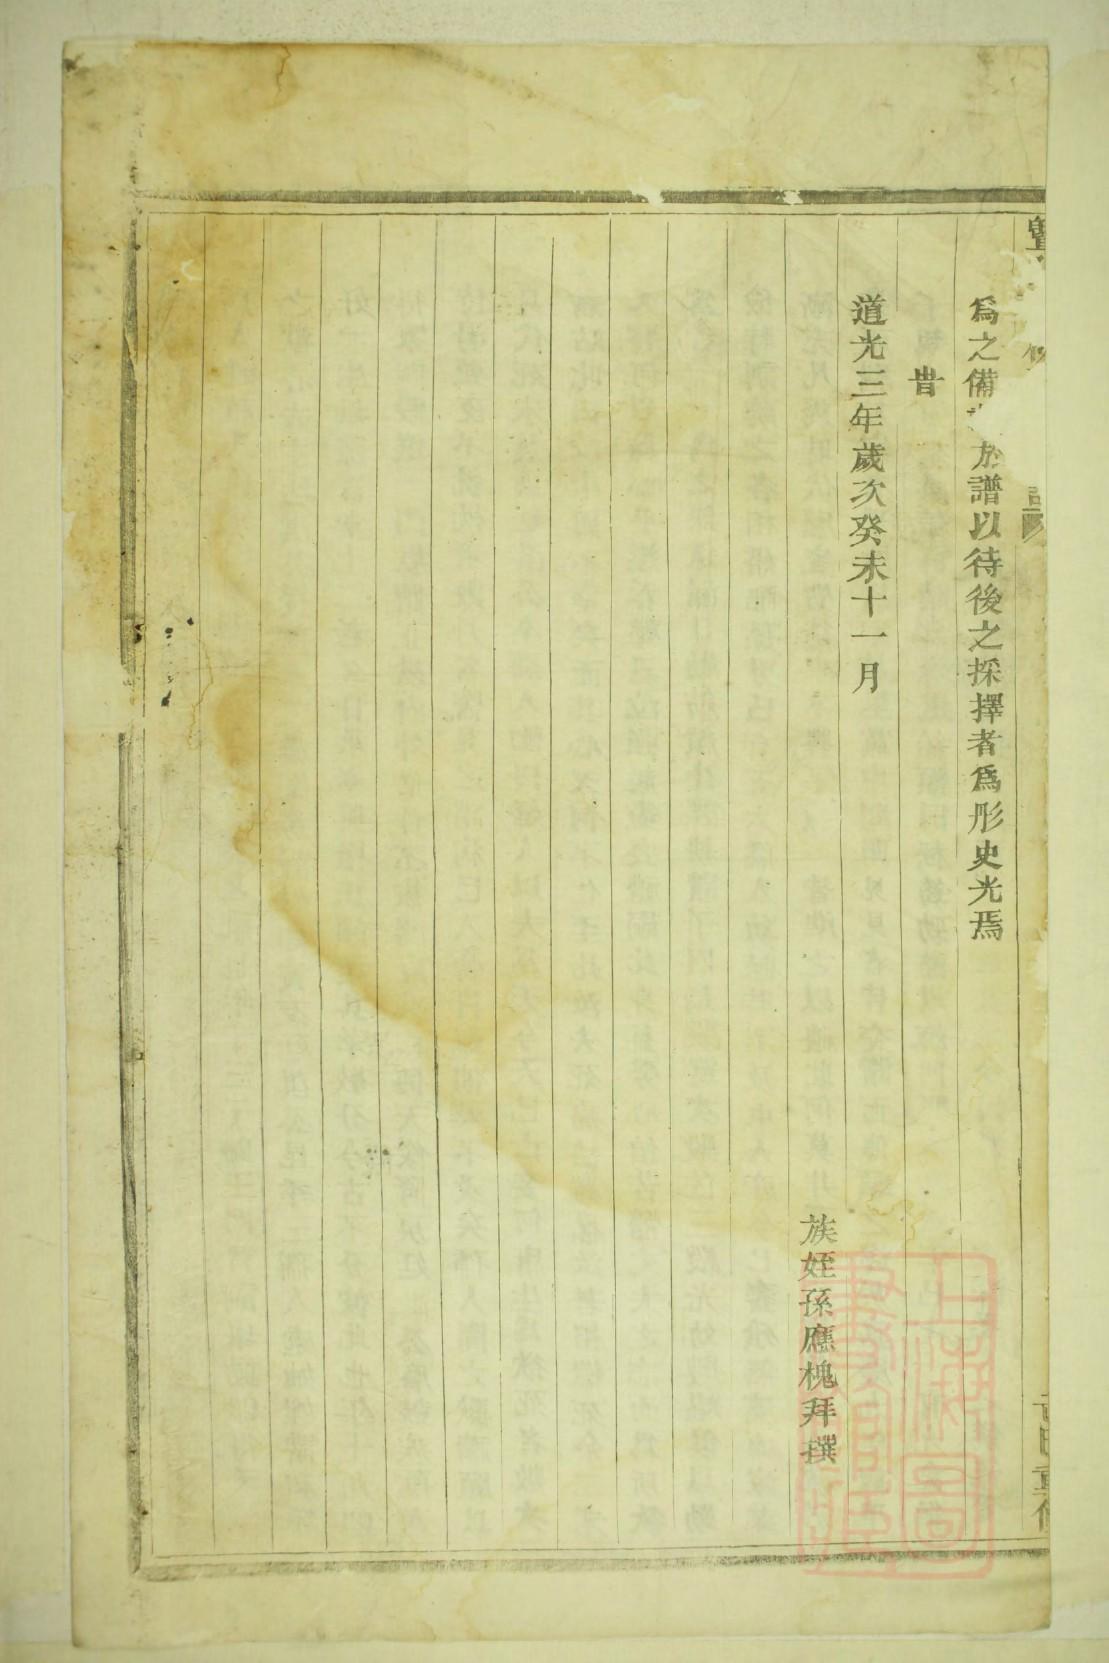 為之備於譜以待後之採擇者為彤史光焉
旹
道光三年歲次癸未十一月
族姪孫應槐拜撰
上海圖書館藏